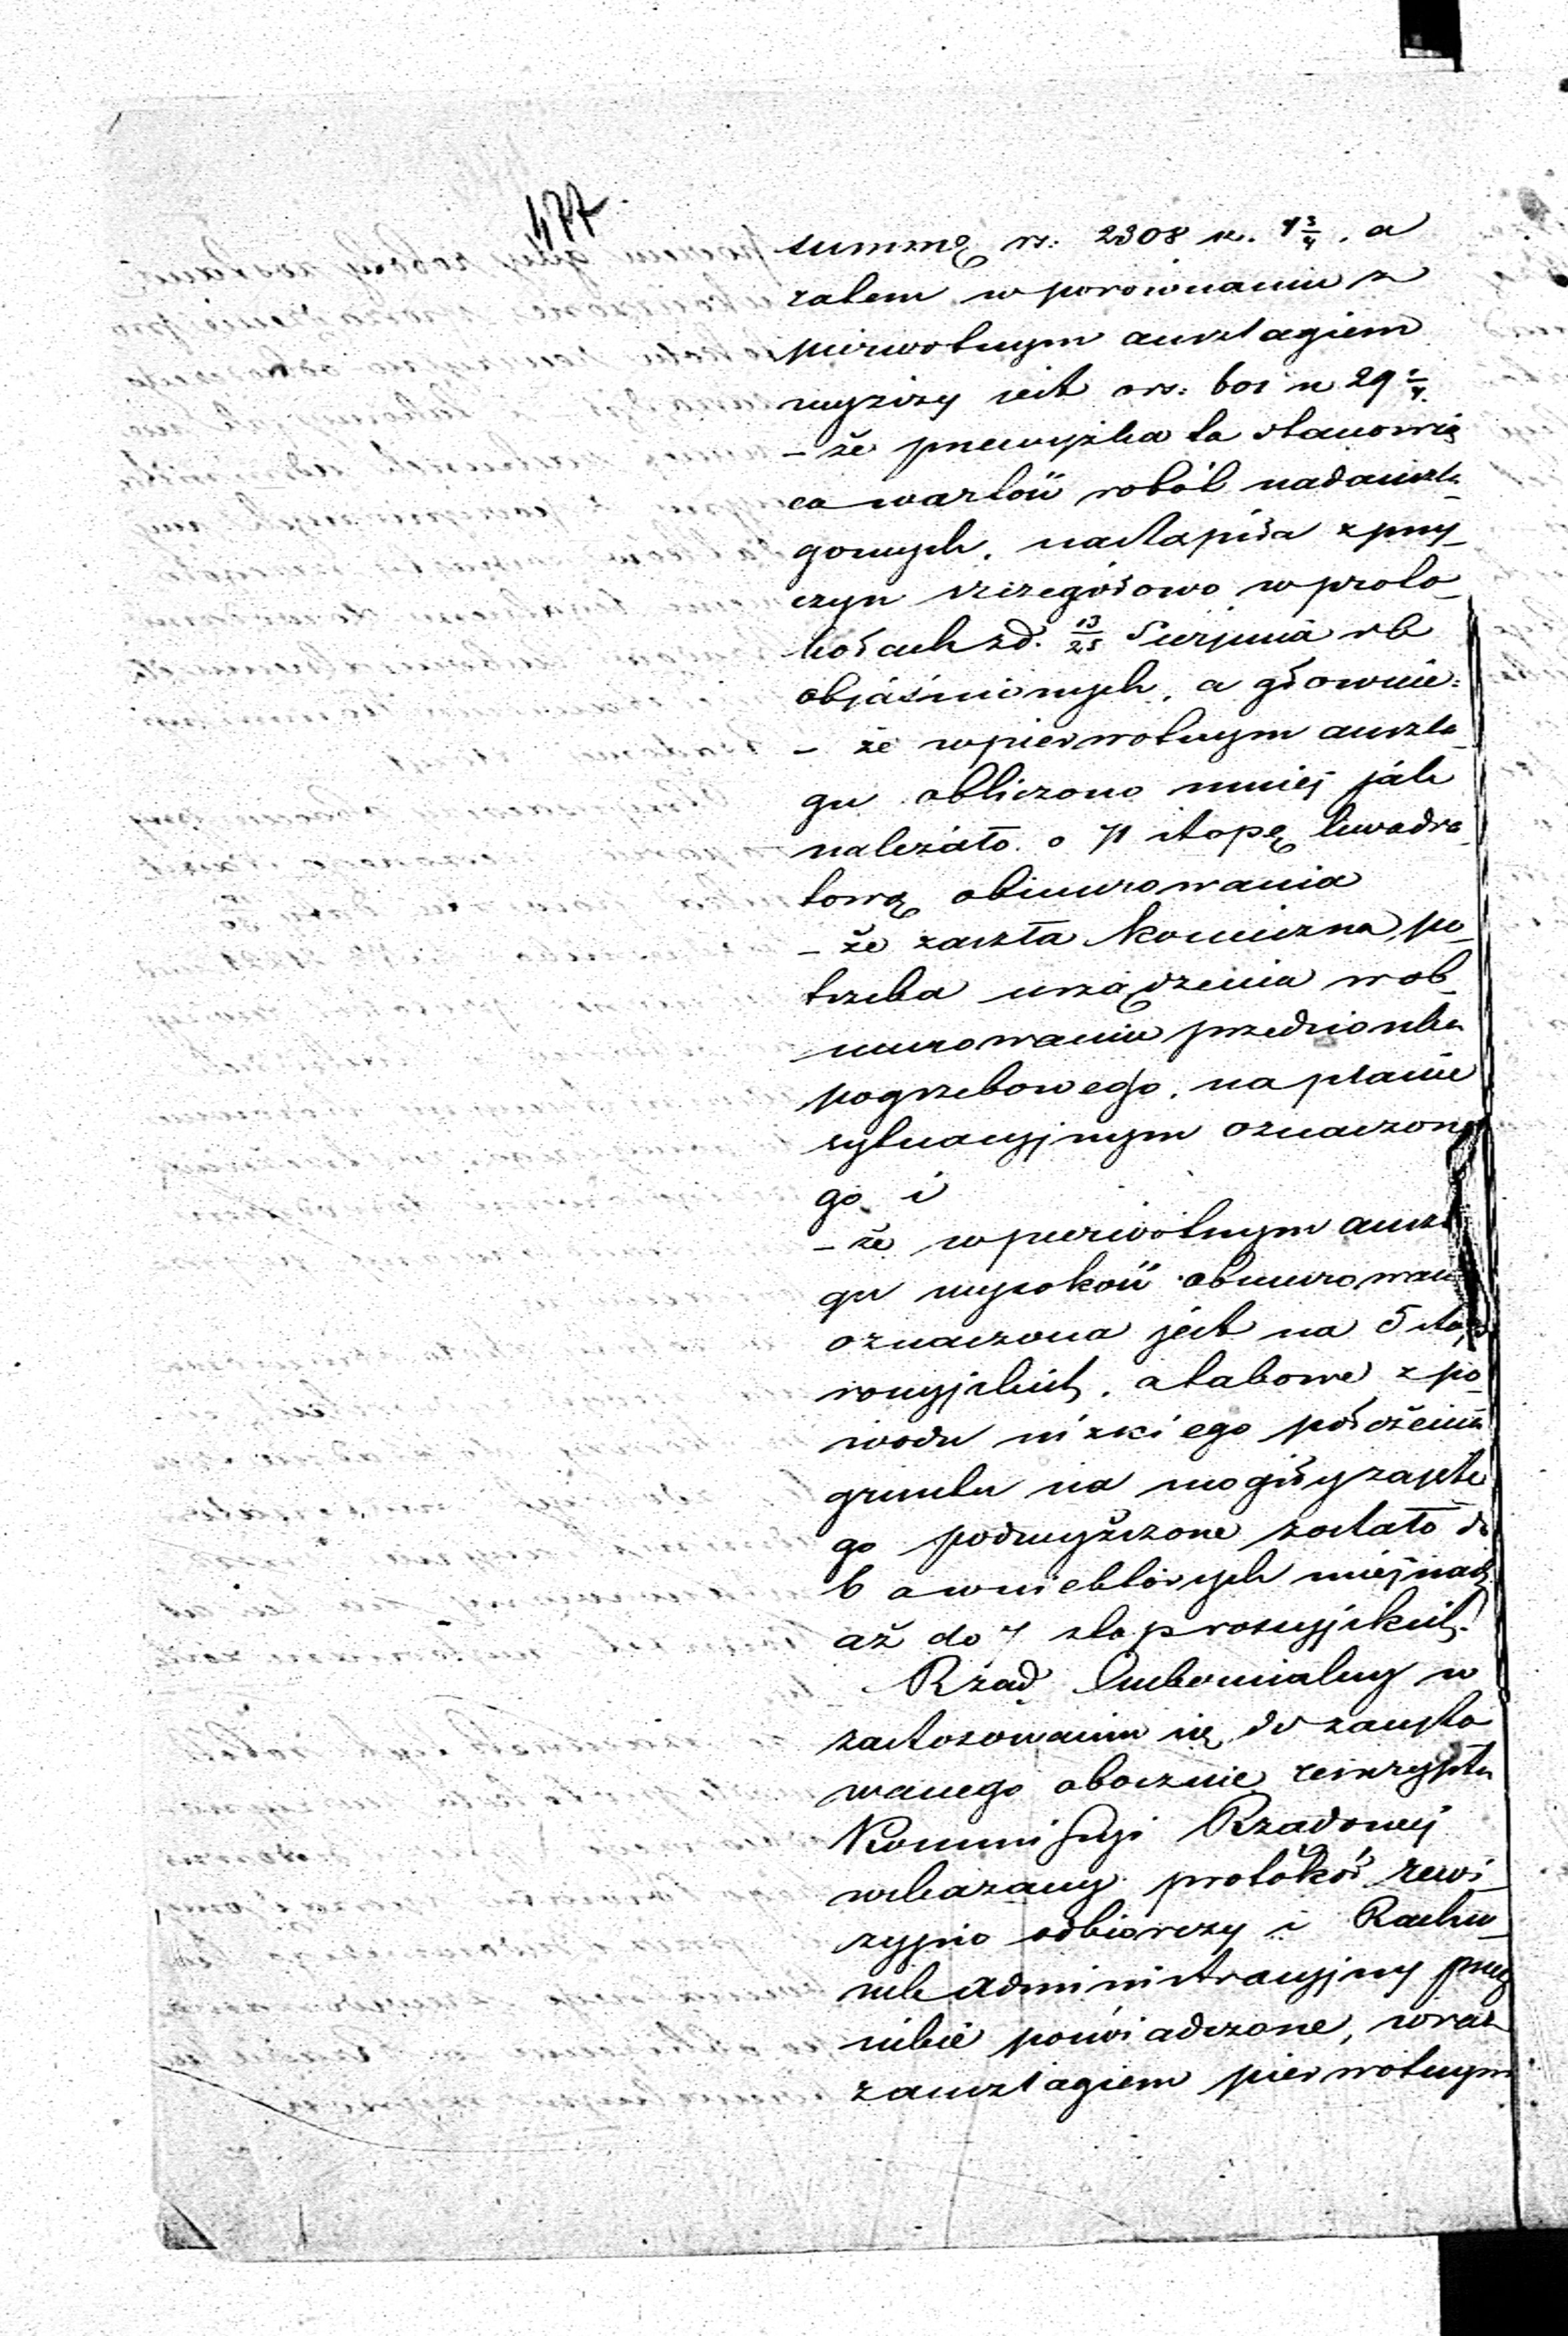 477
summę rs: 2308 k. 7 3/4. a
zatem w porównaniu z
pierwotnym anszlagiem
wyższy jest o rs: 601 k 29 1/4.
– że przewyżka ta stanowią_
ca wartość robót nadanszla_
gowych, nastąpiła z przy_
czyn szczegółowo w proto_
kółach z d. 13/25 Sierpnia rb
objaśnionych, a głównie:
– że w pierwotnym anszla_
gu obliczono mniej jak
należało o 71 stopę kwadra_
tową obmurowania
– że zaszła konieczna po_
trzeba urządzenia w ob_
murowaniu przedzionka
pogrzebowego, na planie
sytuacyjnym oznaczone_
go i
– że w pierwotnym anszla
gu wysokość obmurowania
oznaczona jest na 5 stop
rossyjskich, a takowe z po_
wodu nizkiego położenia
gruntu na mogiły zajęte
go podwyższone zostało do
6 a w niektórych miejscach
aż do 7 stop rossyjskich.
Rząd Gubernialny w
zastosowaniu się do zacyto
wanego obocznie reskryptu
Kommissyi Rządowej
wskazany protokół rewi_
zyjno odbiorczy i Rachu_
nek administracyjny przez
siebie poświadczone, wraz
z anszlagiem pierwotnym